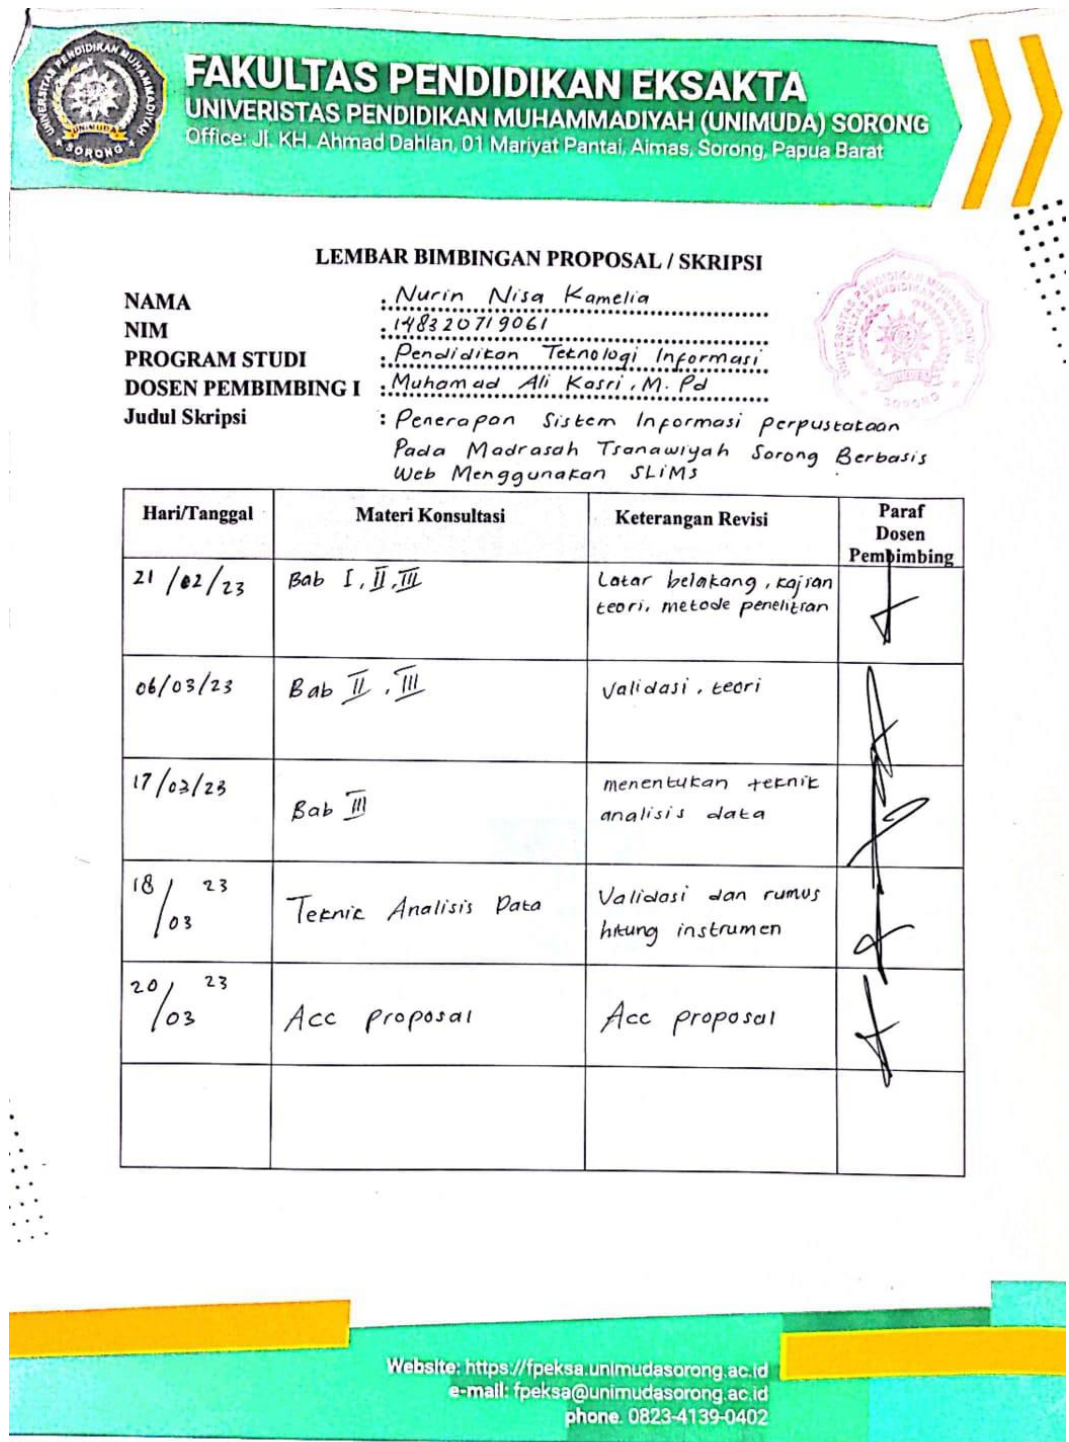 FAKULTAS PENDIDIKAN EKSAKTA
UNIVERISTAS PENDIDIKAN MUHAMMADIYAH (UNIMUDA) SORONG
Office: Jl. KH. Ahmad Dahlan, 01 Mariyat Pantai, Aimas, Sorong, Papua Barat
UNIVERSITAS PENDIDIKAN MUHAMMADIYAH
UNIMUDA
SORONG
LEMBAR BIMBINGAN PROPOSAL / SKRIPSI
NAMA : Nurin Nisa Kamelia
NIM : 148320719061
PROGRAM STUDI : Pendidikan Teknologi Informasi
DOSEN PEMBIMBING I : Muhamad Ali Kasri, M. Pd
Judul Skripsi : Penerapan Sistem Informasi perpustakaan
Pada Madrasah Tsanawiyah Sorong Berbasis
Web Menggunakan SLiMS
Hari/Tanggal Materi Konsultasi Keterangan Revisi Paraf Dosen Pembimbing
21/02/23 Bab I, II, III Latar belakang, kajian
teori, metode penelitian
06/03/23 Bab II, III Validasi, teori
17/03/23 Bab III menentukan teknik
analisis data
18/03 23 Teknik Analisis Data Validasi dan rumus
hitung instrumen
20/03 23 Acc proposal Acc proposal
Website: https://fpeksa.unimudasorong.ac.id
e-mail: fpeksa@unimudasorong.ac.id
phone. 0823-4139-0402